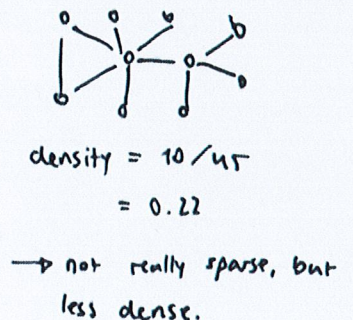 density = 10/45
= 0.22
→ not really sparse, but
less dense.